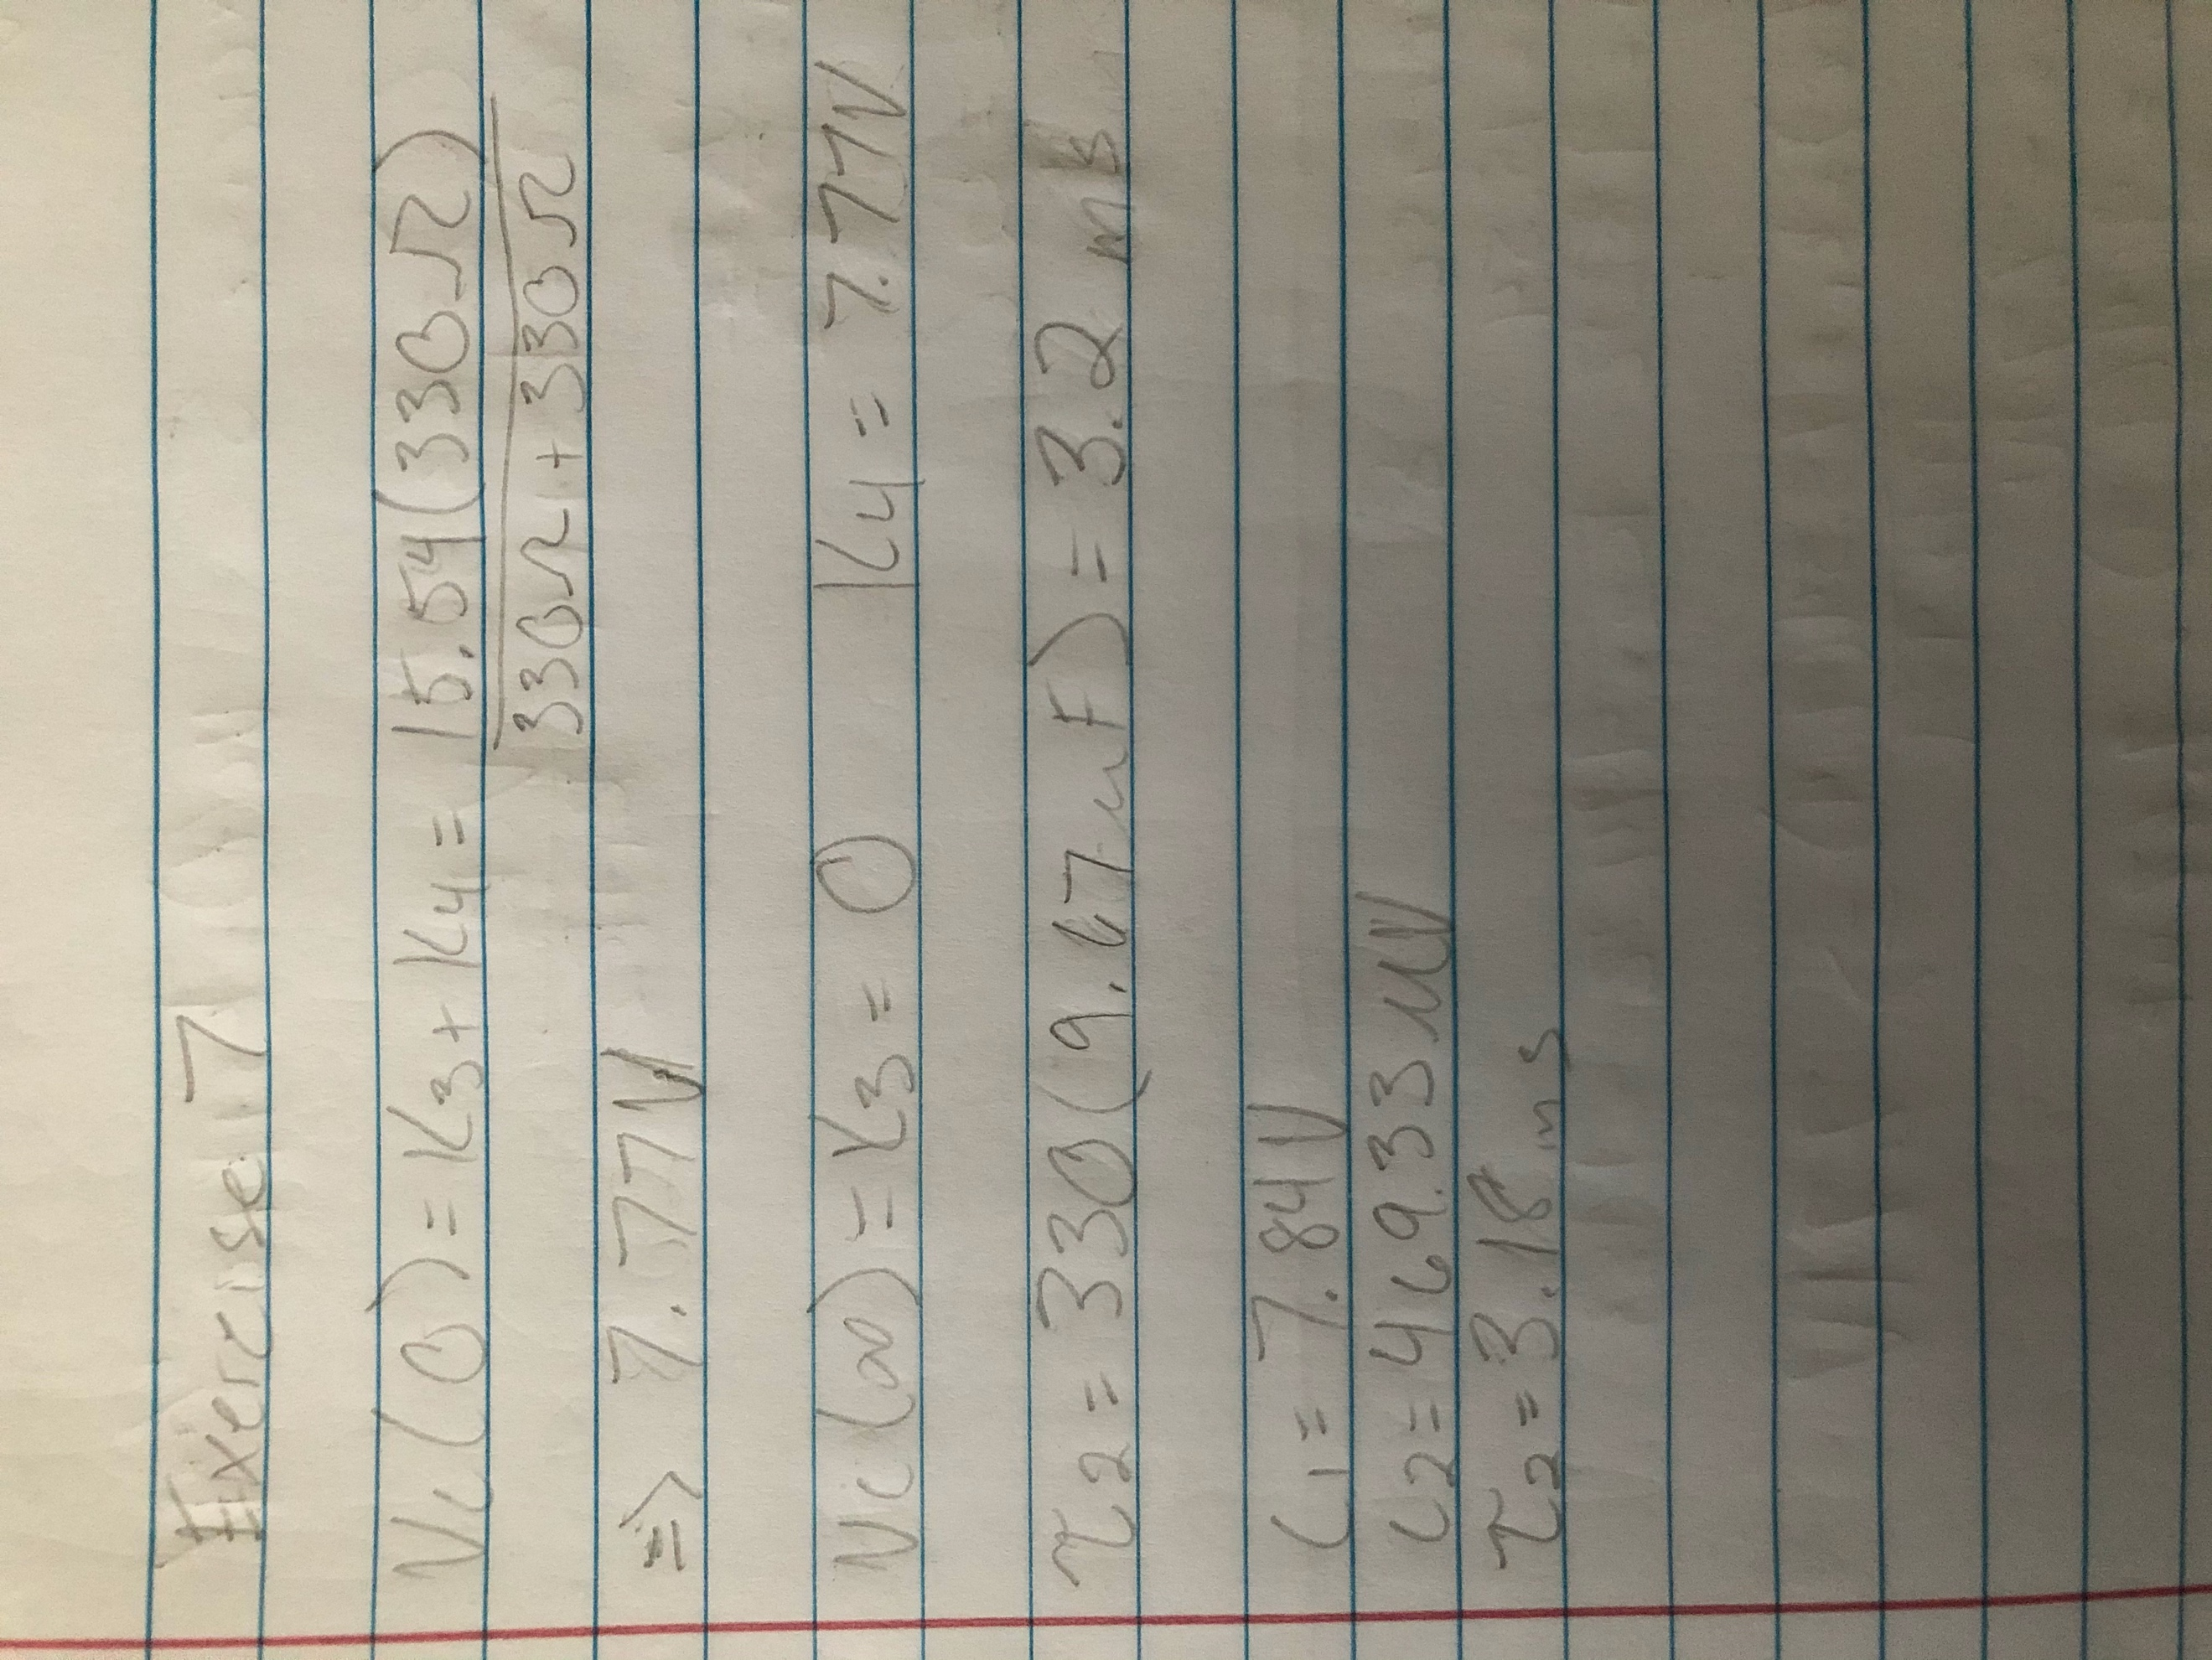 Exercise 7
Vc(0) = K3 + K4 = 15.54(330Ω)
330Ω + 330Ω
=> 7.77V
Vc(∞) = K3 = 0 K4 = 7.77V
τ2 = 330(9.67uF) = 3.2 ms
C1 = 7.84V
C2 = 469.33uV
τ2 = 3.18ms